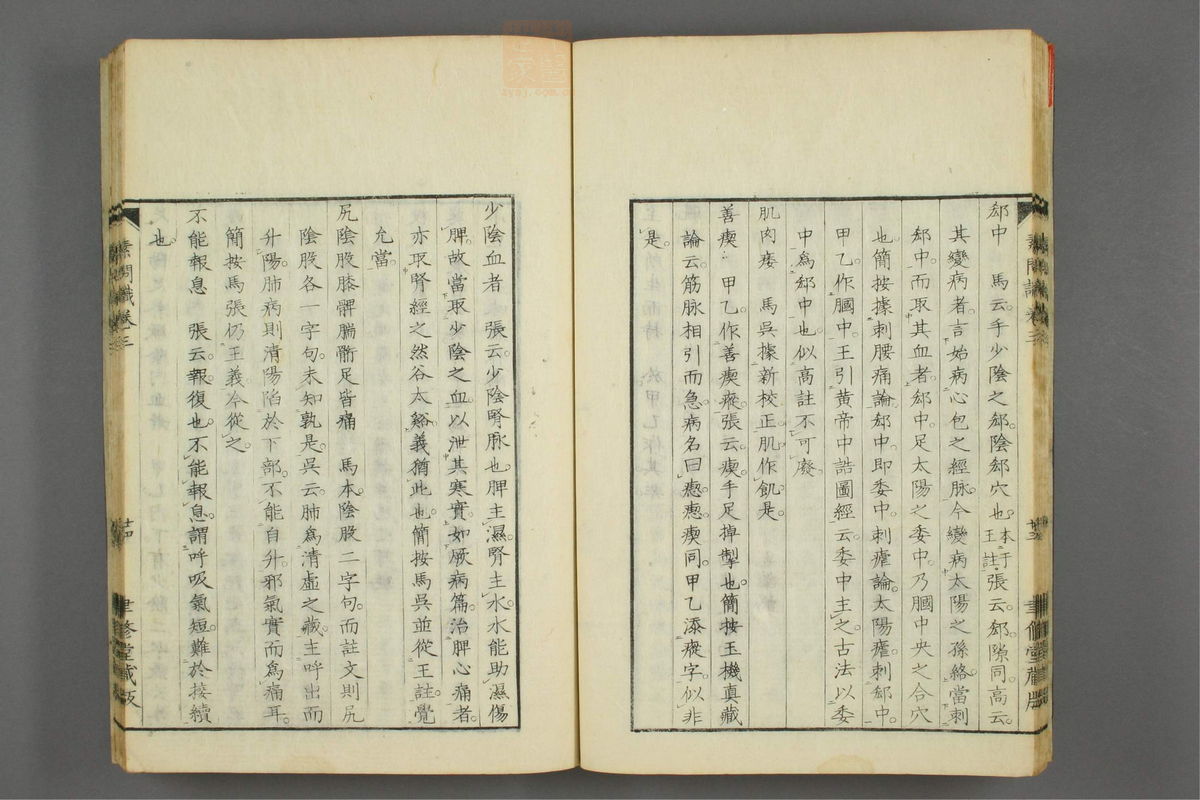 郄中　馬云。手少陰之郄。陰郄穴也。本于王註。張云。郄隙同。高云。
其變病者。言始病心包之經脉。今變病太陽之孫絡。當刺
郄中。而取其血者。郄中。足太陽之委中。乃膕中央之合穴
也。簡按據刺腰痛論。郄中。即委中。刺瘧論。太陽瘧。刺郄中。
甲乙。作膕中。王引黄帝中誥圖經云。委中主之。古法以委
中為郄中也。似高註不可廢。
肌肉痿　馬吳據新校正。肌作飢。是。
善瘈　甲乙。作善瘈瘲。張云。瘈。手足掉掣也。簡按玉機真藏
論云。筋脉相引而急。病名曰瘛。瘛瘈同。甲乙添瘲字。似非
是。
素問識卷三
聿修堂藏版
少陰血者　張云。少陰腎脉也。脾主濕。腎主水。水能助濕傷
脾。故當取少陰之血。以泄其寒實。如厥病篇。治脾心痛者。
亦取腎經之然谷太谿。義猶此也。簡按馬吳並從王註。覺
允當。
尻陰股膝髀腨䯒足皆痛　馬本。陰股二字句。而註文則尻
陰股各一字句。未知孰是。吳云。肺為清虛之藏。主呼出而
升陽。肺病則清陽陷於下部。不能自升。邪氣實而為痛耳。
簡按馬張仍王義。今從之。
不能報息　張云。報。復也。不能報息。謂呼吸氣短。難於接續
也。
素問識卷三
廿四
聿修堂藏版